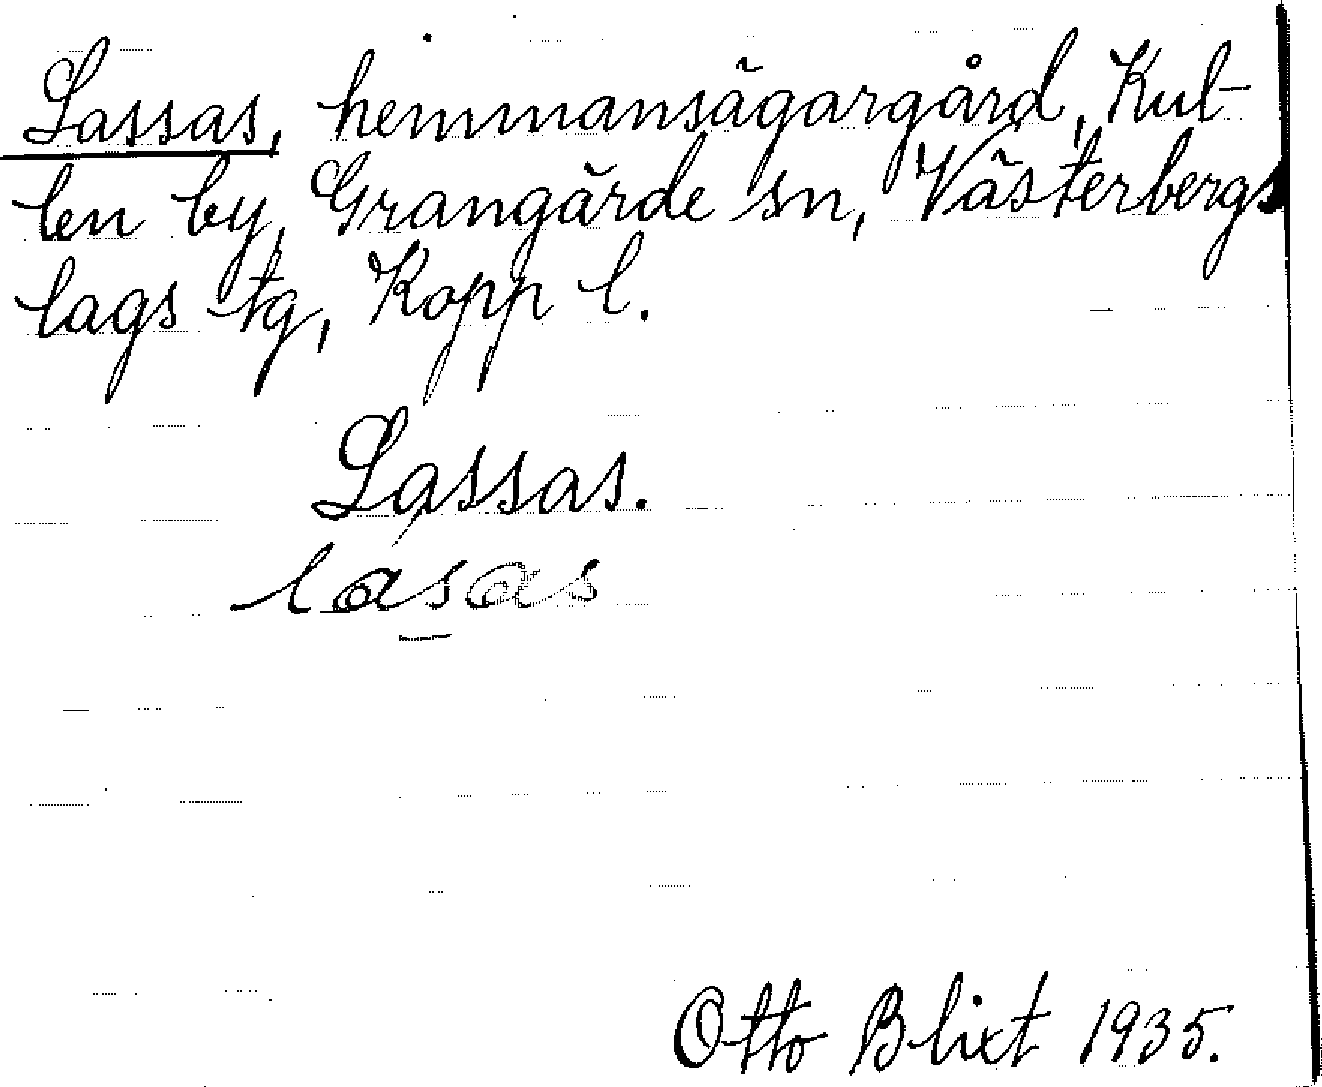 Lassas, hemmansägargård, Kul-
len by, Grangärde sn, Västerbergs
lags tg, Kopp l.
Lassas.
lasas
Otto Blixt 1935.